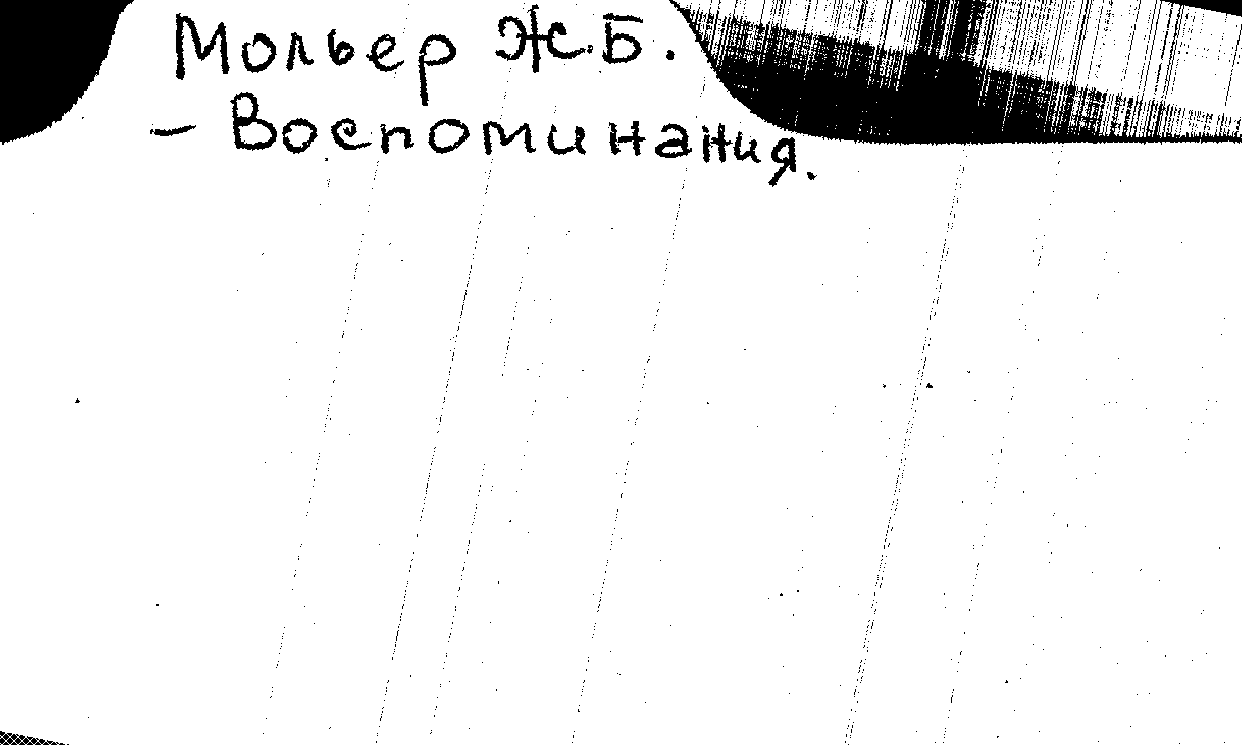 Мольер Ж.Б.
- Воспоминания.